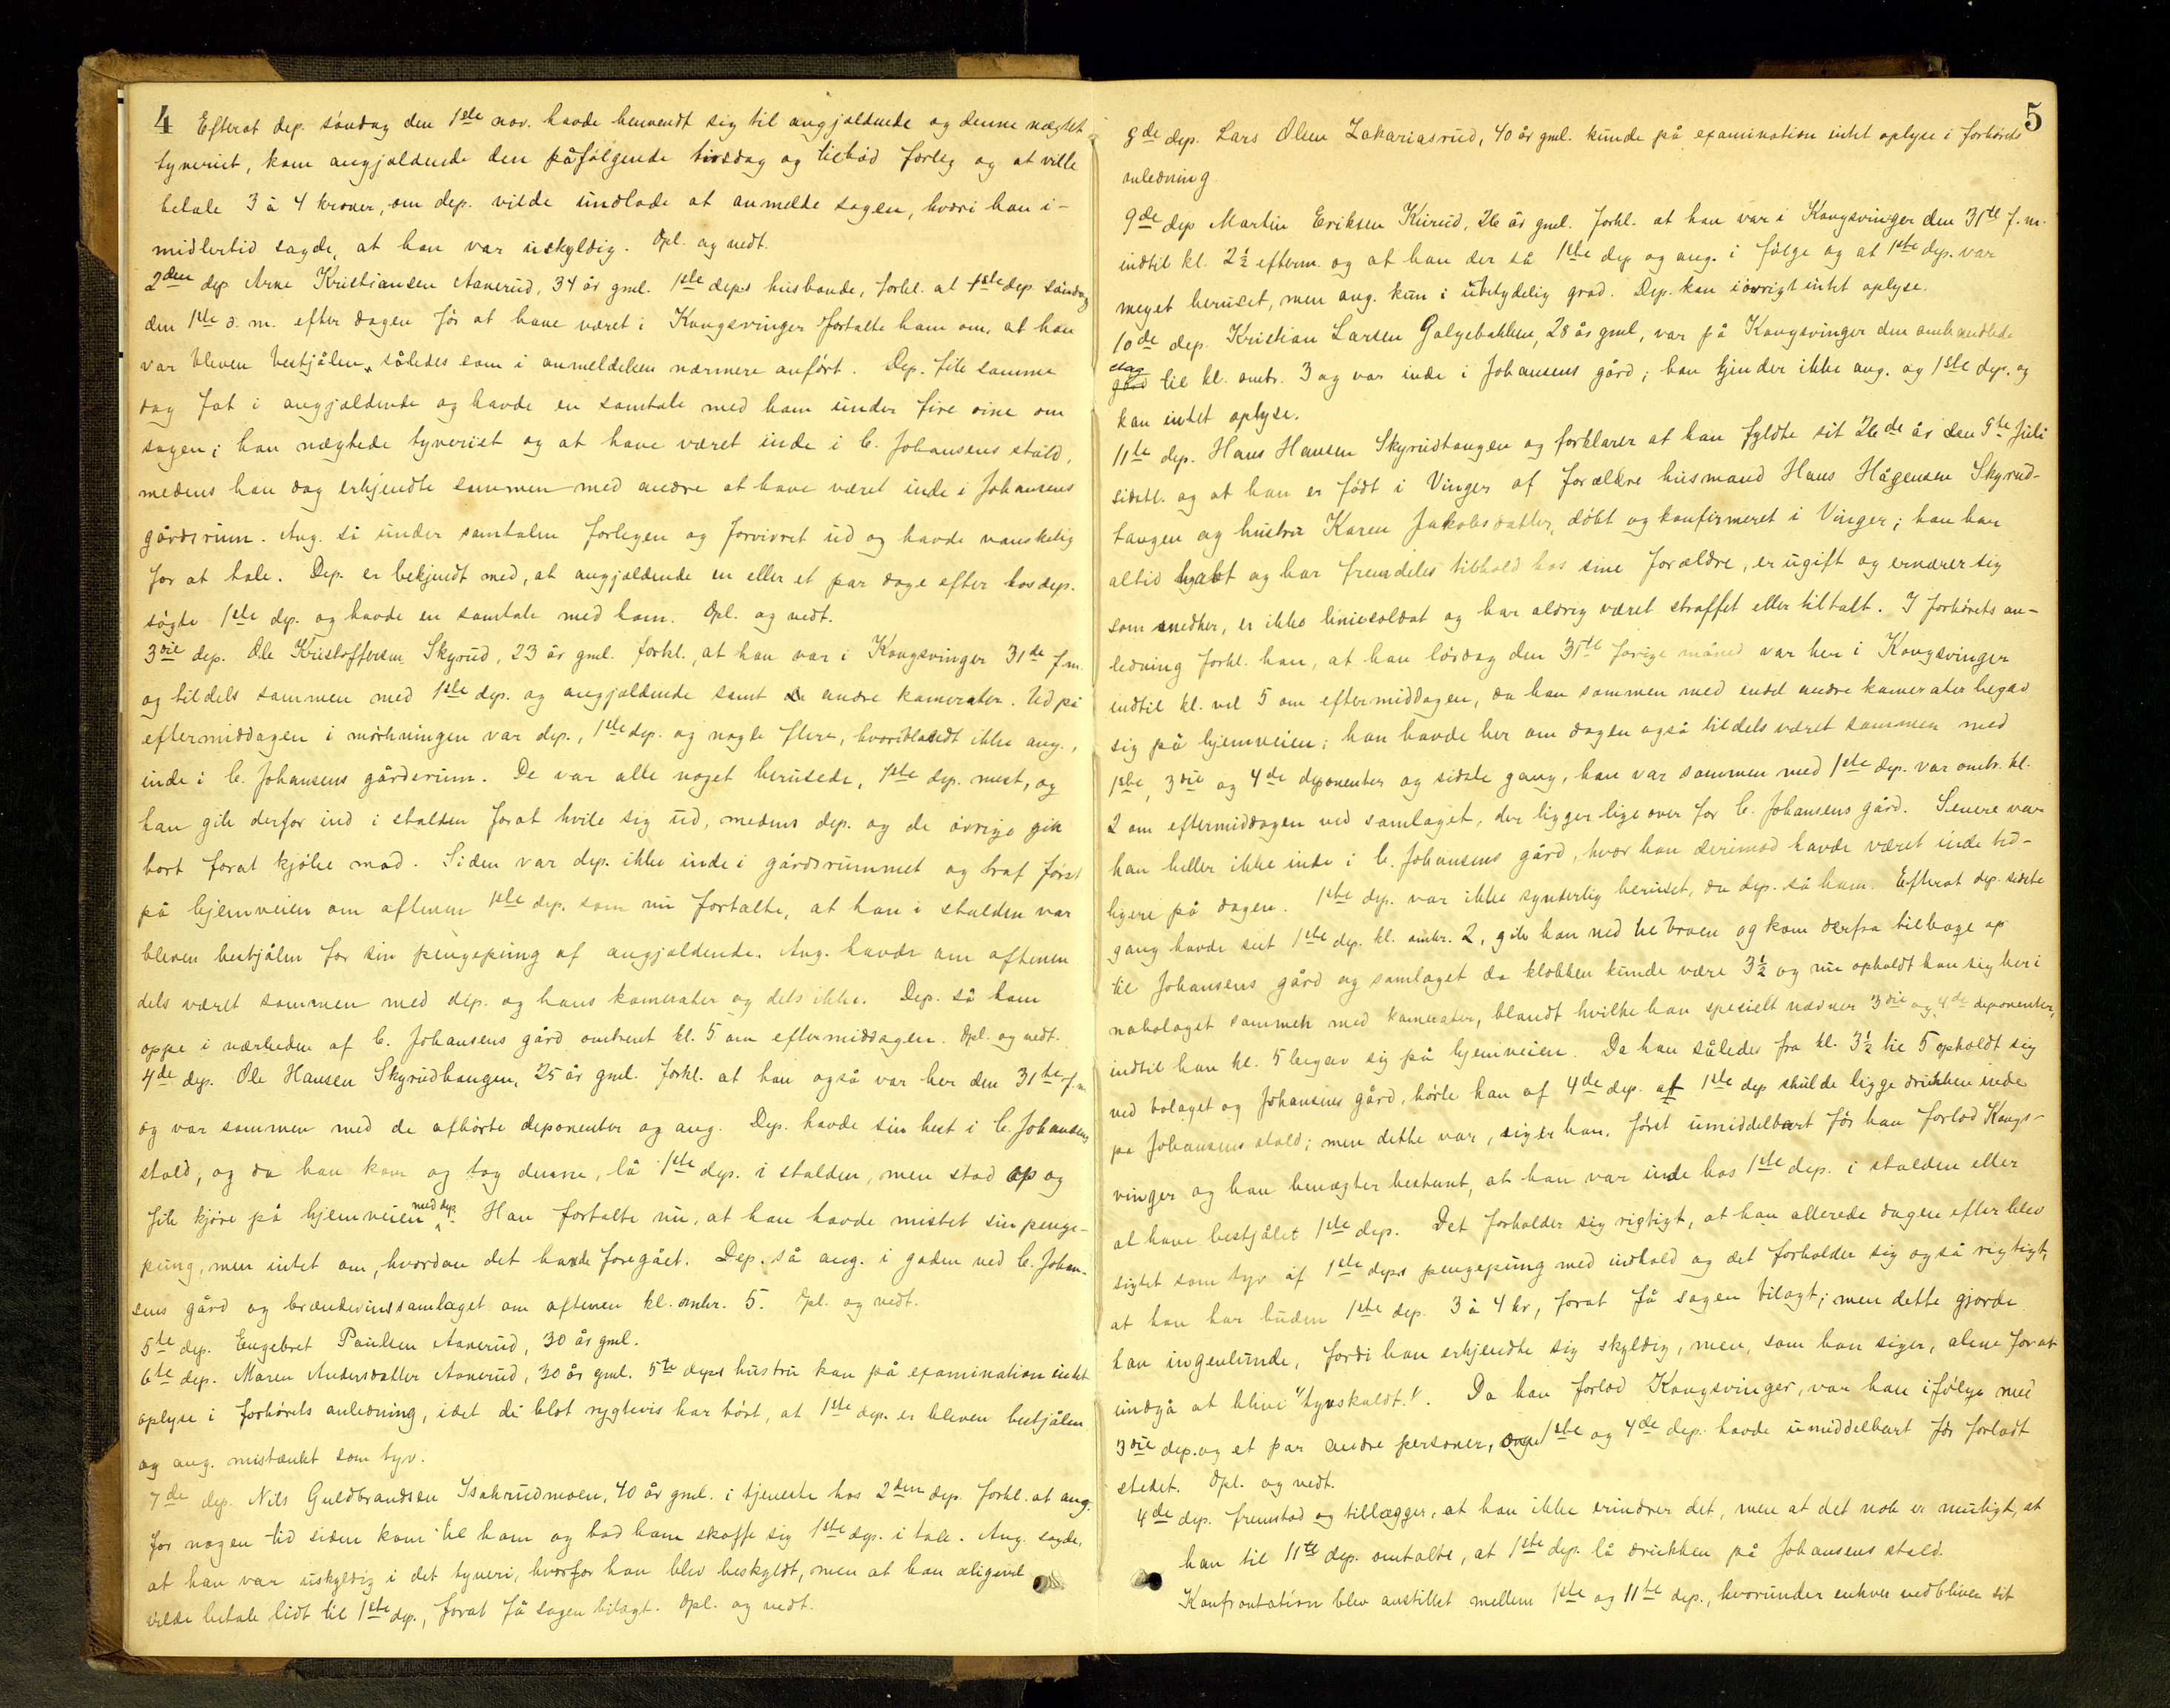 4
Efterat dep. söndag den 1ste nov. havde henvendt sig til angjældende og denne nægtet
tyveriet, kom angjældende den påfölgende tirsdag og tilböd forlig og at ville
betale 3 à 4 kroner, om dep. vilde undlade at anmelde sagen, hvori han i-
midlertid sagde, at han var uskyldig. Opl. og vedt.
2den dep Arne Kristiansen Aanerud, 34 år gml. 1ste deps husbonde, forkl. at 1ste dep. söndag
den 1ste d. m. efter dagen för at have været i Kongsvinger fortalte ham om, at han
var bleven bestjålen, således som i anmeldelsen nærmere anfört. Dep. fik samme
dag fat i angjældende og havde en samtale med ham under fire öine om
sagen; han nægtede tyveriet og at have været inde i C. Johansens stald,
medens han dog erkjendte sammen med andre at have været inde i Johansens
gårdsrum. Ang. så under samtalen forlegen og forvirret ud og havde vanskelig
for at tale. Dep. er bekjendt med, at angjældende en eller et par dage efter hos dep.
sögte 1ste dep. og havde en samtale med ham. Opl. og vedt.
3die dep. Ole Kristoffersen Skyrud, 23 år gml. forkl., at han var i Kongsvinger 31de f.m.
og tildels sammen med 1ste dep. og angjældende samt andre kamerater. Ud på
eftermiddagen i mörkningen var dep., 1ste dep. og nogle flere, hvoriblandt ikke ang.,
inde i C. Johansens gårdsrum. De var alle noget berusede, 1ste dep. mest, og
han gik derfor ind i stalden forat hvile sig ud, medens dep. og de övrige gik
bort forat kjöbe mad. Siden var dep. ikke inde i gårdsrummet og traf först
på hjemveien om aftenen 1ste dep. som nu fortalte, at han i stalden var
bleven bestjålen for sin pengepung af angjældende. Ang. havde om aftenen
dels været sammen med dep. og hans kamerater og dels ikke. Dep. så ham
oppe i nærheden af C. Johansens gård omtrent kl. 5 om eftermiddagen. Opl. og vedt.
4de dep. Ole Hansen Skyrudhaugen, 25 år gml. forkl. at han også var her den 31te f.m.
og var sammen med de afhörte deponenter og ang. Dep. havde sin hest i C. Johansens
stald, og da han kom og tog denne, lå 1ste dep. i stalden, men stod op og
fik kjöre på hjemveien med dep. Han fortalte nu, at han havde mistet sin penge-
pung, men intet om, hvordan det havde foregået. Dep. så ang. i gaden ved C. Johan-
sens gård og brændevinssamlaget om aftenen kl. omtr. 5. Opl. og vedt.
5te dep. Engebret Paulsen Aanerud, 30 år gml.
6te dep. Maren Andersdatter Aanerud, 30 år gml. 5te deps hustru kan på examination intet
oplyse i forhörets anledning, idet de blot rygtevis har hört, at 1ste dep. er bleven bestjålen
og ang. mistænkt som tyv.
7de dep. Nils Guldbrandsen Isakrudmoen, 40 år gml. i tjeneste hos 2den dep. forkl. at ang.
for nogen tid siden kom til ham og bad ham skaffe sig 1ste dep. i tale. Ang. sagde,
at han var uskyldig i det tyveri, hvorfor han blev beskyldt, men at han aligevel
vilde betale lidt til 1ste dep., forat få sagen bilagt. Opl. og vedt.
5
8de dep. Lars Olsen Zakariasrud, 40 år gml. kunde på examination intet oplyse i forhörets
anledning
9de dep Martin Eriksen Kurud, 26 år gml. forkl. at han var i Kongsvinger den 31te f.m.
indtil kl. 2½ efterm. og at han der så 1ste dep og ang. i fölge og at 1ste dep. var
meget beruset, men ang. kun i ubetydelig grad. Dep. kan iövrigt intet oplyse.
10de dep. Kristian Larsen Galgebakken, 28 år gml, var på Kongsvinger den omhandlede
dag til kl. omtr. 3 og var inde i Johansens gård; han kjender ikke ang. og 1ste dep. og
kan intet oplyse.
11te dep. Hans Hansen Skyrudtangen og forklarer at han fyldte sit 26de år den 9te juli
sidstl. og at han er födt i Vinger af forældre husmand Hans Hågensen Skyrud-
tangen og hustru Karen Jakobsdatter, döbt og konfirmeret i Vinger; han har
altid havt og har fremdeles tilhold hos sine forældre, er ugift og ernærer sig
som snedker, er ikke liniesoldat og har aldrig været straffet eller tiltalt. I forhörets an-
ledning forkl. han, at han lördag den 31te forige måned var her i Kongsvinger
indtil kl. vel 5 om eftermiddagen, da han sammen med endel andre kamerater begav
sig på hjemveien; han havde her om dagen også tildels været sammen med
1ste, 3die og 4de deponenter og sidste gang, han var sammen med 1ste dep. var omtr. kl.
2 om eftermiddagen ved samlaget, der ligger lige over for C. Johansens gård. Senere var
han heller ikke inde i C. Johansens gård, hvor han derimod havde været inde tid-
ligere på dagen. 1ste dep. var ikke synderlig beruset, da dep. så ham. Efterat dep. sidste
gang havde seet 1ste dep. kl. omtr. 2, gik han ned til broen og kom derfra tilbage op
til Johansens gård og samlaget da klokken kunde være 3½ og nu opholdt han sig her i
nabolaget sammen med kamerater, blandt hvilke han specielt nævner 3die og 4de deponenter,
indtil han kl. 5 begav sig på hjemveien. Da han således fra kl. 3½ til 5 opholdt sig
ved bolaget og Johansens gård, hörte han af 4de dep. at 1ste dep skulde ligge drukken inde
på Johansens stald; men dette var, siger han, först umiddelbart för han forlod Kongs-
vinger og han benægter bestemt, at han var inde hos 1ste dep. i stalden eller
at have bestjålet 1ste dep. Det forholder sig rigtigt, at han allerede dagen efter blev
sigtet som tyv af 1ste deps pengepung med indhold og det forholder sig også rigtigt,
at han har buden 1ste dep. 3 à 4 kr, forat få sagen bilagt; men dette gjorde
han ingenlunde, fordi han erkjendte sig skyldig, men, som han siger, alene for at
undgå at blive "tyvskaldt". Da han forlod Kongsvinger, var han ifölge med
3die dep. og et par andre personer, 1ste og 4de dep. havde umiddelbart för forladt
stedet. Opl. og vedt.
4de dep. fremstod og tillægger, at han ikke erindrer det, men at det nok er muligt, at
han til 11te dep. omtalte, at 1ste dep. lå drukken på Johansens stald.
Konfrontation blev anstillet mellem 1ste og 11te dep., hvorunder enhver vedbliver sit